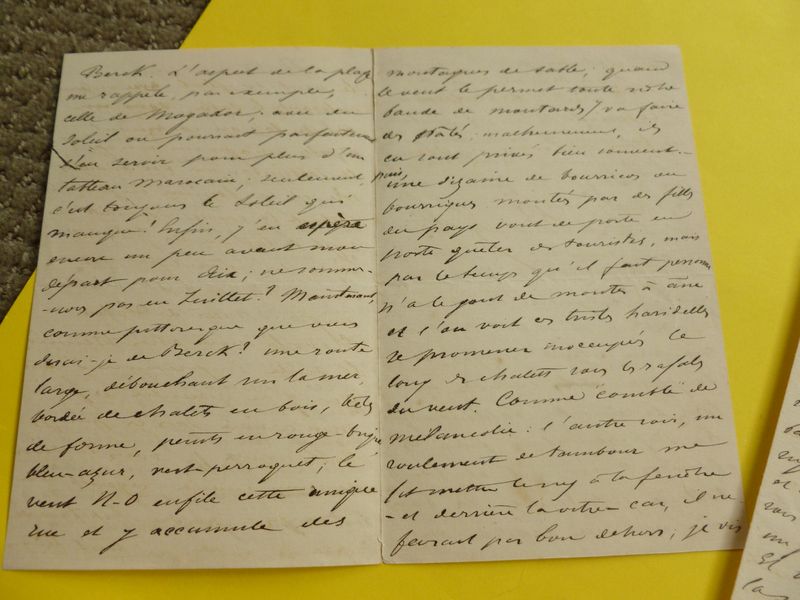 Berck. L'aspect de la plage
me rappelle, par exemple,
celle de Mogador; avec du
Soleil on pourrait parfaitement
s'en servir pour plus d'un
tableau marocain; seulement,
c'est toujours le Soleil qui
manque! Enfin, j'en espère
encore un peu avant mon
départ pour Aix; ne sommes-
-nous pas en Juillet? Maintenant,
comme pittoresque que vous
dirai-je de Berck? une route
large, débouchant sur la mer,
bordée de chalets en bois,
de forme, peints en rouge-brique
bleu-azur, vert-perroquet; le
vent N-O enfile cette unique
rue et y accumule des
montagnes de sable; quand
le vent le permet toute notre
bande de moutards va faire
des patés; malheureusement, ils
en sont privés bien souvent.-
puis, une dizaine de bourricos ou
bourriques montés par des filles
du pays vont de porte en
porte quêter des touristes, mais
par le temps qu'il fait personne
n'a le goût de monter à âne
et l'on voit ces tristes haridelles
se promener inoccupées le
long des chalets sous les rafales
du vent. Comme comble de
mélancolie: l'autre soir, un
roulement de tambour me
fit mettre le nez à la fenêtre
- et derrière la vitre car, il ne
faisait pas bon dehors, je vis